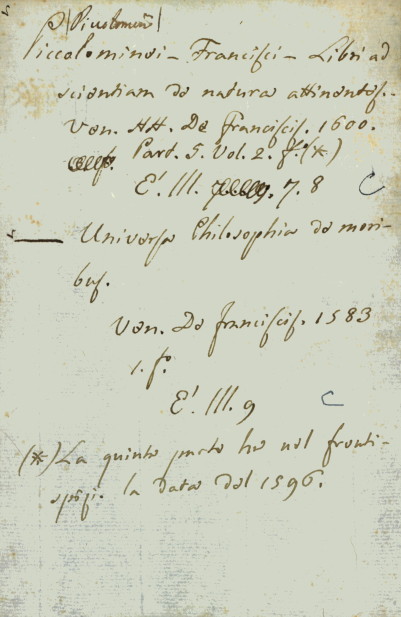 P|Picolomin̄|
Piccolominei – Francisci – Libri ad
scientiam de natura attinentes.
Ven. HH. De Franciscis. 1600.
Part. 5. Vol. 2. f.o (*)
E'. III. 7. 8 C
— Universa Philosophia de mori-
bus.
Ven. De Franciscis. 1583
1. fo.
E'. III. 9 C
(*) La quinta parte ha nel fronti-
spizi. la data del 1596.